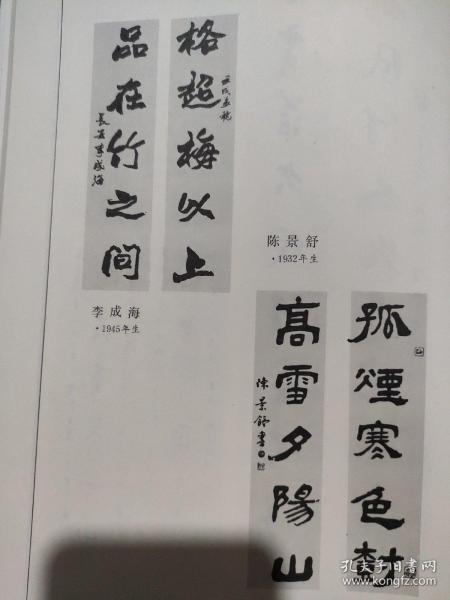 格超梅以上
品在竹之间
长安李成海
李成海
·1945年生
陈景舒
·1932年生
孤烟寒色树
高雪夕陽山
陳景舒書
孔夫子旧书网
kongfz.com